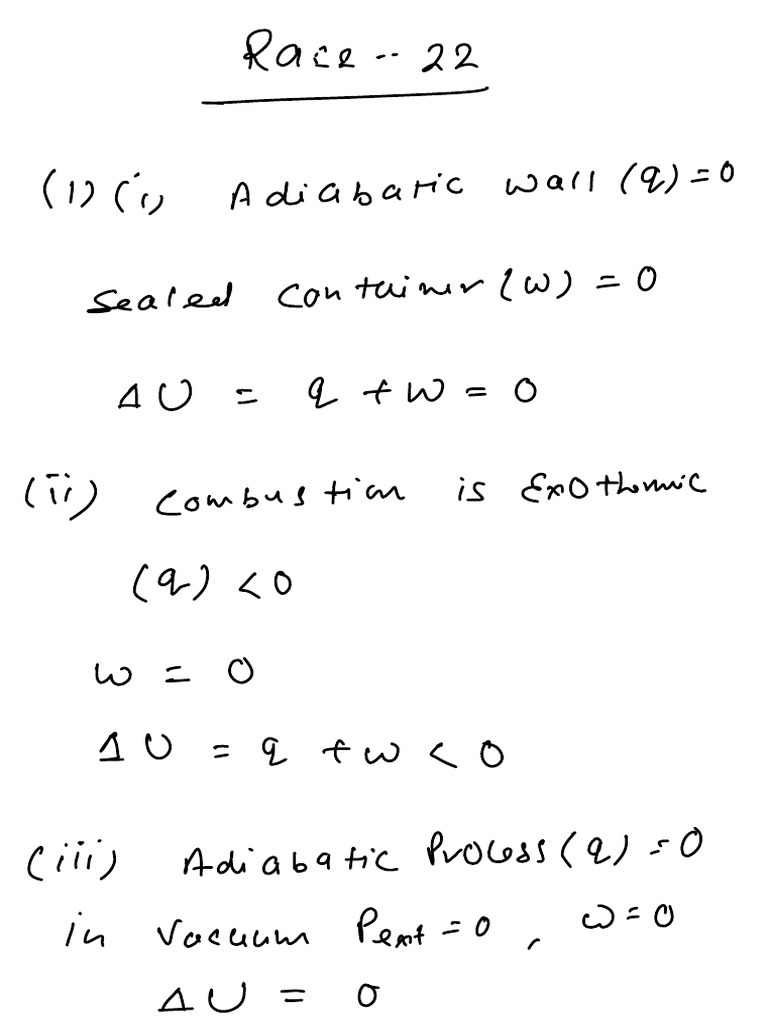 Race -- 22
(1) (i) Adiabatic wall (q) = 0
Sealed container (w) = 0
ΔU = q + w = 0
(ii) Combustion is Exothermic
(q) < 0
w = 0
ΔU = q + w < 0
(iii) Adiabatic Process (q) = 0
in vacuum Pext = 0, w = 0
ΔU = 0